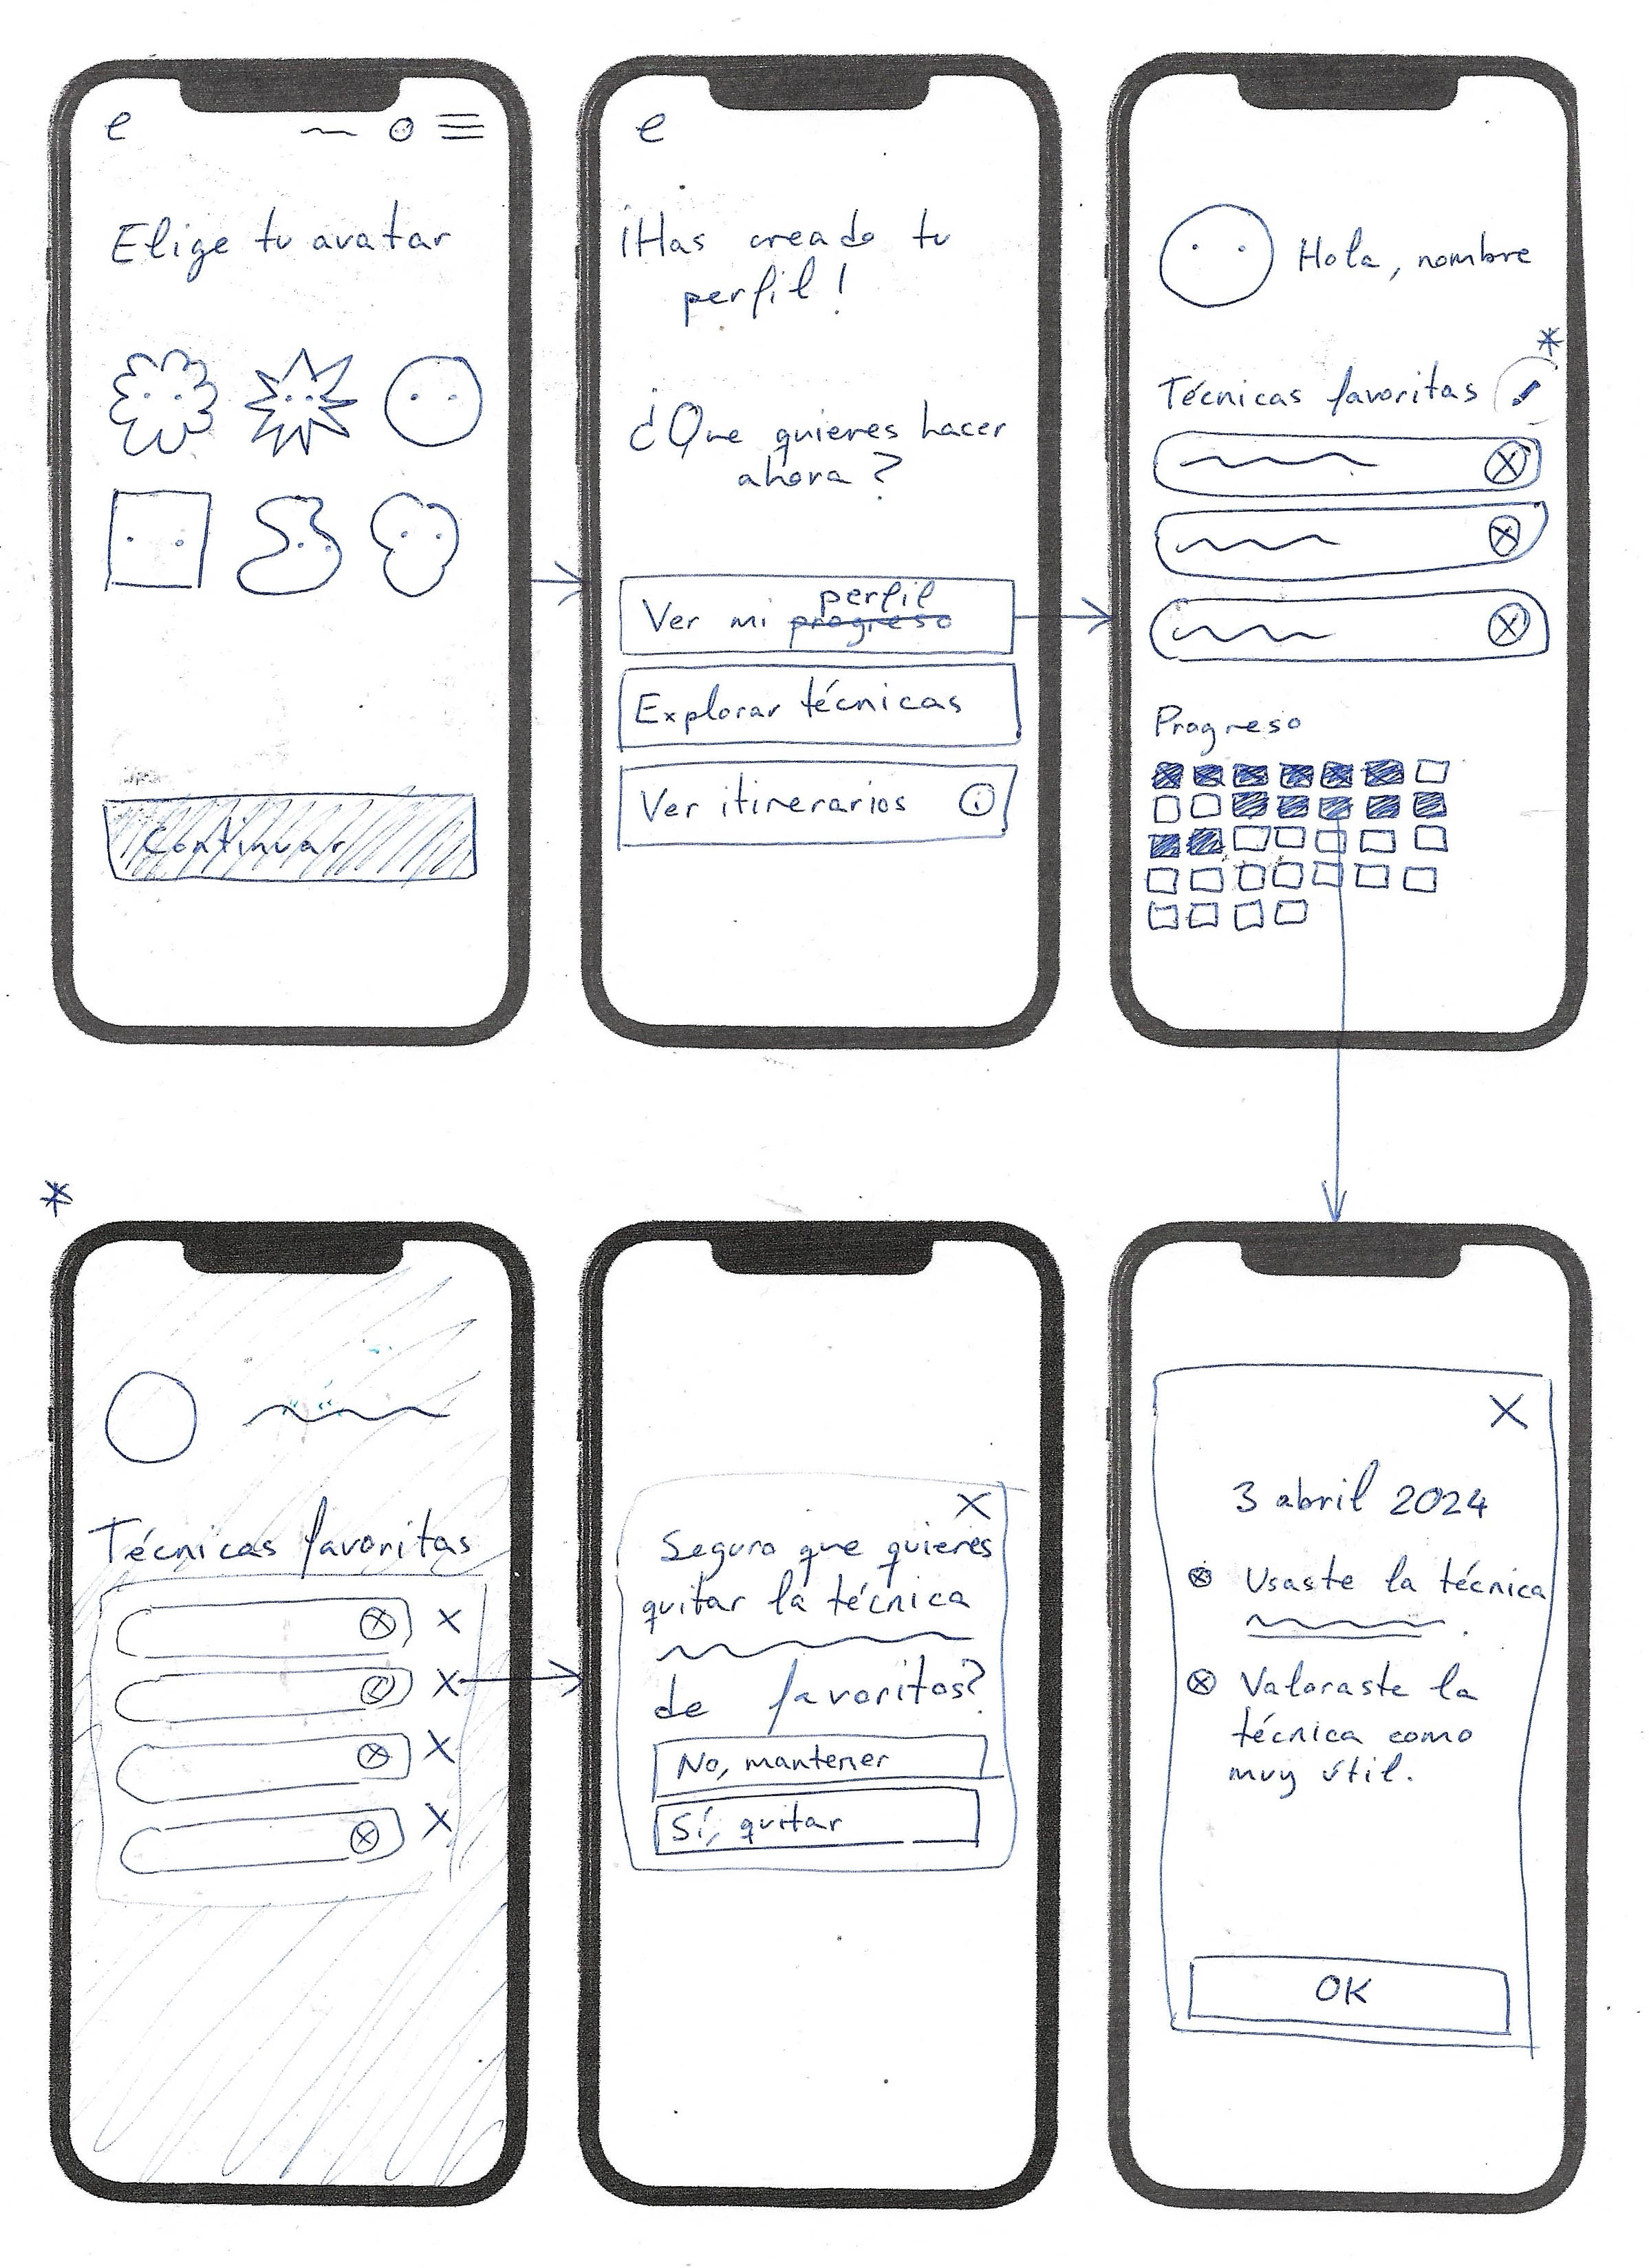 e
Elige tu avatar
Continuar
e
¡Has creado tu
perfil!
¿Que quieres hacer
ahora?
perfil
Ver mi progreso
Explorar técnicas
Ver itinerarios i
Hola, nombre
*
Técnicas favoritas
Progreso
*
Técnicas favoritas
X
X
X
X
X
Seguro que quieres
quitar la técnica
de favoritos?
No, mantener
Sí, quitar
X
3 abril 2024
Usaste la técnica
.
Valoraste la
técnica como
muy útil.
OK